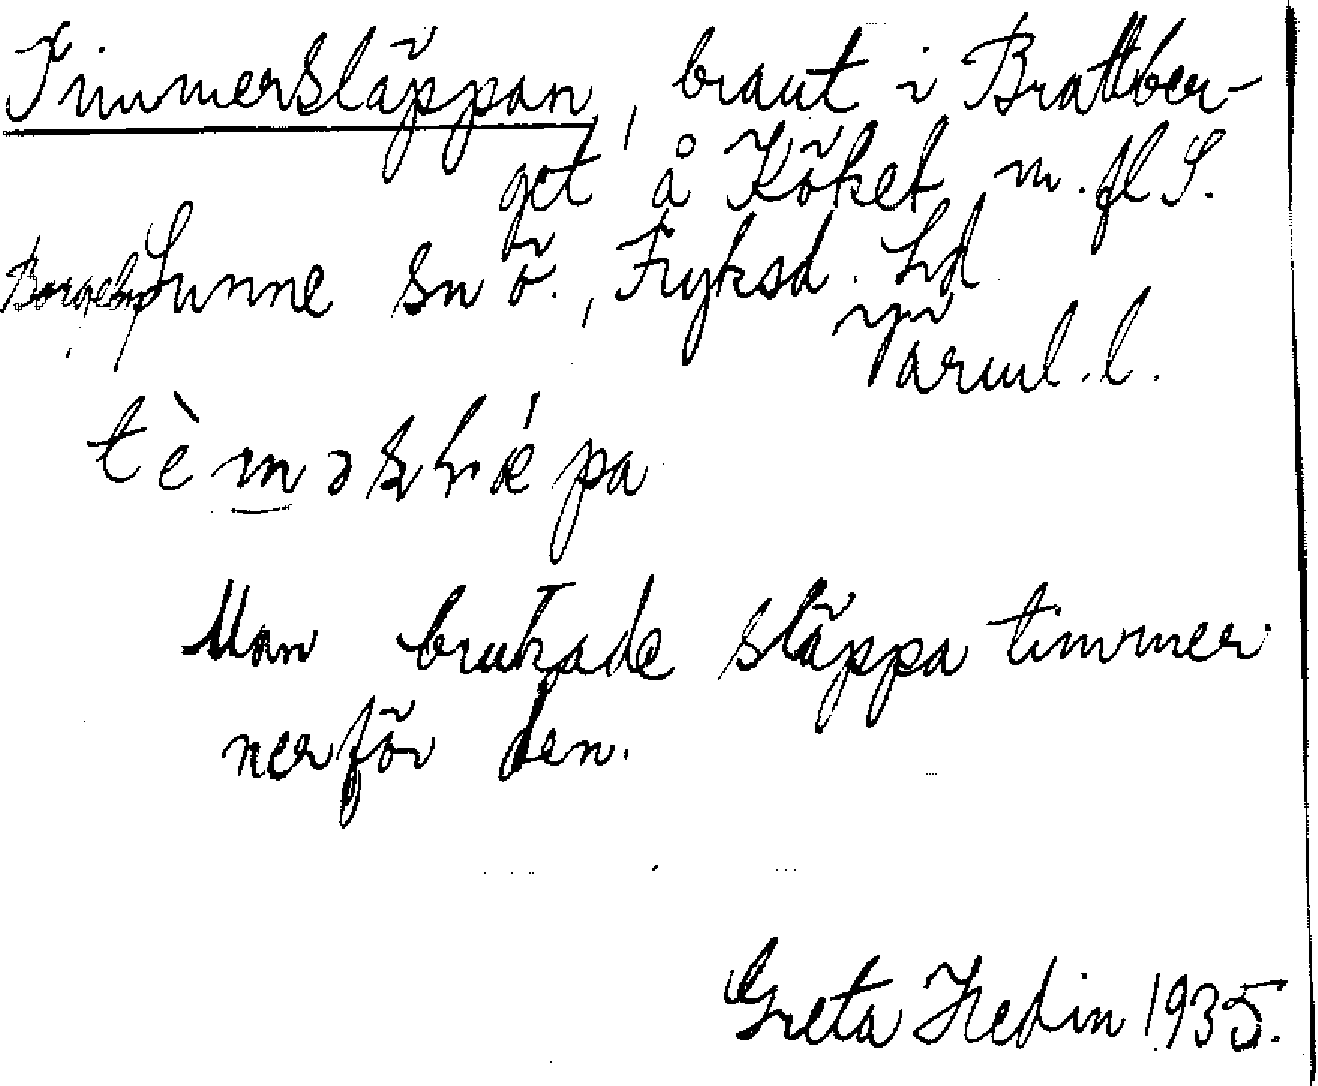 Timmersläppan, brant i Brattber-
get å Köket m. fl S.
Borgeby Sunne sn ö., Fryksd. hd
Värml. l.
tèməslǽpa
Man brukade släppa timmer
nerför den.
Greta Hedin 1935.